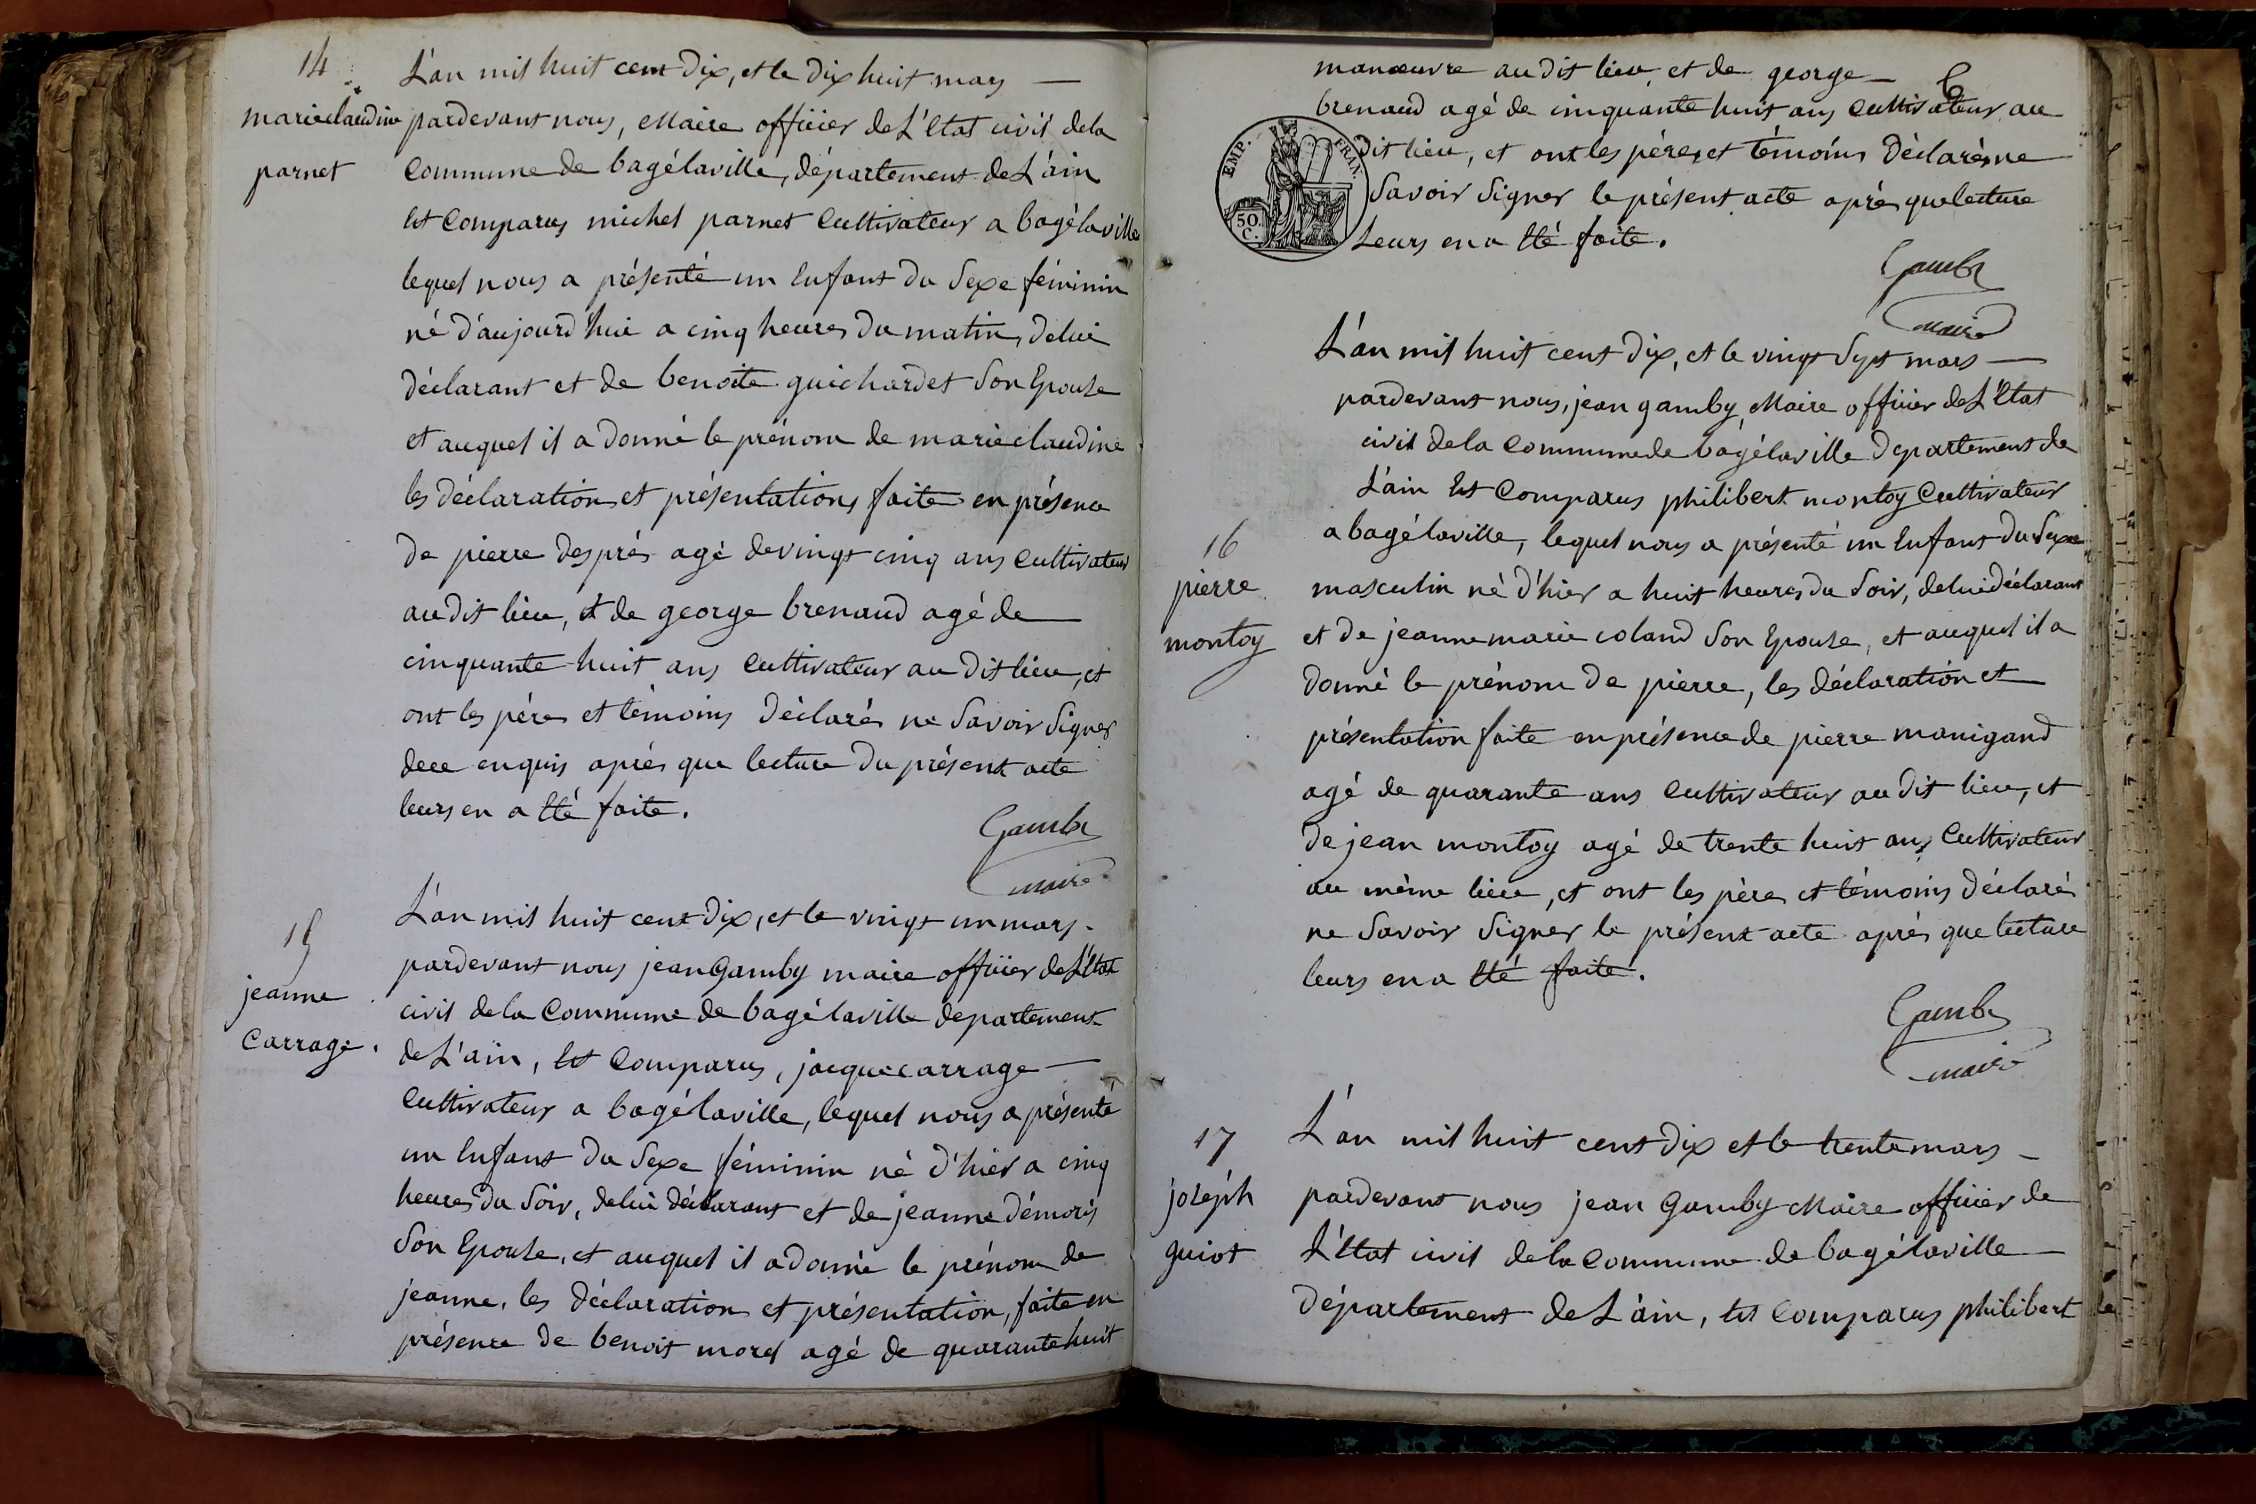 14
marie claudine
parnet
L'an mil huit cent dix, et le dix huit mars
pardevant nous, Maire officier de L'Etat civil de la
Commune de bagélaville, département de L'ain
Est Comparus michel parnet Cultivateur a bagélaville
lequel nous a présenté un Enfant du Sexe féminin
né d'aujourd'hui a cinq heures du matin, de lui
déclarant et de benoite guichardet Son Epouse
et auquel il a donné le prénom de marie claudine
les déclaration et présentations faite en présence
de pierre després agé de vingt cinq ans Cultivateur
au dit lieu, et de george brenaud agé de
cinquante huit ans Cultivateur au dit lieu, et
ont les pére et témoins déclarés ne Savoir Signer
de ce enquis aprés que lecture du présent acte
leurs en a Eté faite.
Gamby
maire
15
jeanne
Carrage.
L'an mil huit cent dix, et le vingt un mars.
pardevant nous jean Gamby maire officier de L'Etat
civil de la Commune de bagélaville département
de L'ain, Est Comparus, jacque carrage
Cultivateur a bagélaville, lequel nous a présenté
un Enfant du Sexe féminin né d'hier a cinq
heures du Soir, de lui déclarant et de jeanne démoris
Son Epouse, et auquel il a donné le prénom de
jeanne, les déclaration et présentation, faite en
présence de benoit morel agé de quarante huit
6
manœuvre au dit lieu, et de george
brenaud agé de cinquante huit ans Cultivateur au
dit lieu, et ont les pére et témoins déclarés ne
Savoir Signer le présent acte aprés que lecture
Leurs en a Eté faite.
EMP. FRAN.
50
C.
Gamby
maire
L'an mil huit cent dix, et le vingt Sept mars
pardevant nous, jean gamby Maire officier de L'Etat
civil de la Commune de bagélaville département de
L'ain Est Comparus philibert montoy Cultivateur
a bagélaville, lequel nous a présenté un Enfant du Sexe
16
pierre
montoy
masculin né d'hier a huit heures du Soir, de lui déclarant
et de jeanne marie coland Son Epouse, et auquel il a
donné le prénom de pierre, les déclaration et
présentation faite en présence de pierre manigand
agé de quarante ans Cultivateur au dit lieu, et
de jean montoy agé de trente huit ans Cultivateur
au même lieu, et ont les pére et témoins déclaré
ne Savoir Signer le présent acte aprés que lecture
leurs en a Eté faite.
Gamby
maire
17
joseph
guiot
L'an mil huit cent dix et le trente mars
pardevant nous jean Gamby Maire officier de
L'Etat civil de la Commune de bagélaville
département de L'ain, Est Comparus philibert